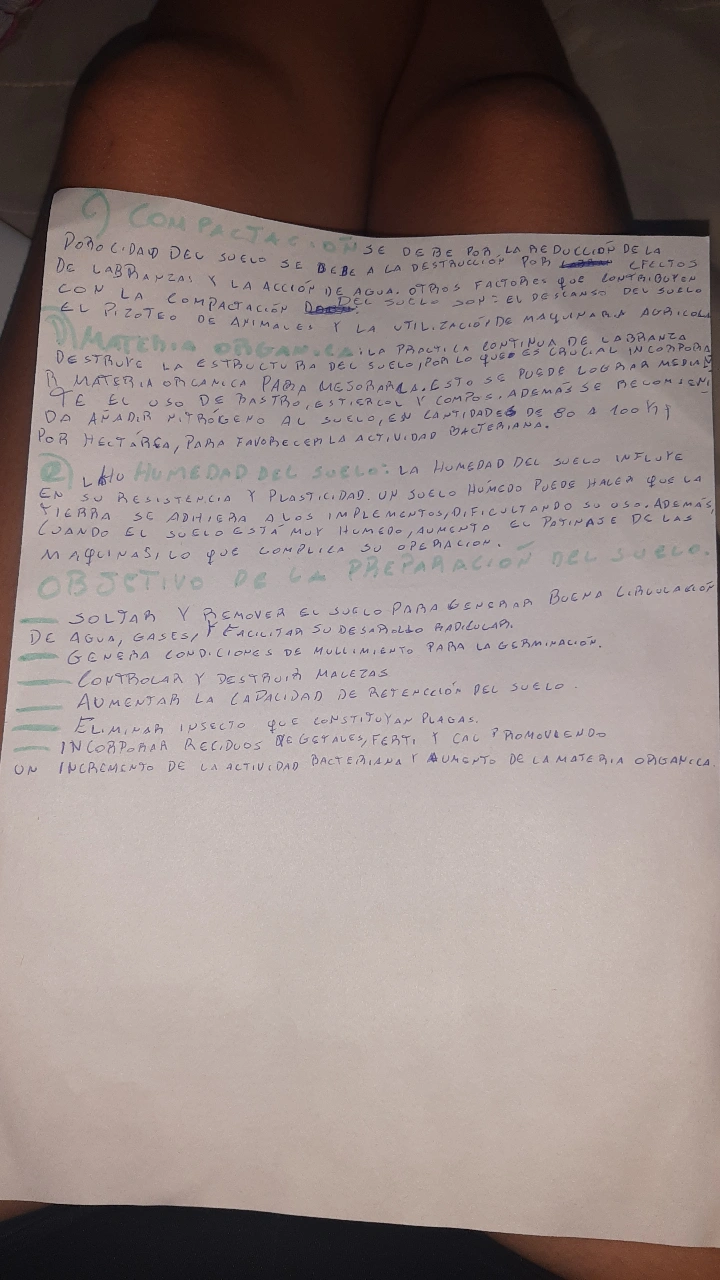 C) COMPACTACIÓN SE DEBE POR LA REDUCCIÓN DE LA
POROCIDAD DEL SUELO SE DEBE A LA DESTRUCCIÓN POR EFECTOS
DE LABRANZAS Y LA ACCIÓN DE AGUA. OTROS FACTORES QUE CONTRIBUYEN
CON LA COMPACTACIÓN DEL SUELO SON: EL DESCANSO DEL SUELO
EL PIZOTEO DE ANIMALES Y LA UTILIZACIÓN DE MAQUINARIA AGRICOL
D) MATERIA ORGANICA: LA PRACTICA CONTINUA DE LABRANZA
DESTRUYE LA ESTRUCTURA DEL SUELO, POR LO QUE ES CRUCIAL INCORPORA
R MATERIA ORGANICA PARA MEJORARLA. ESTO SE PUEDE LOGRAR MEDIAN
TE EL USO DE RASTRO, ESTIERCOL Y COMPOS. ADEMÁS SE RECOMIEN
DA AÑADIR NITRÓGENO AL SUELO, EN CANTIDADES DE 80 A 100 K
POR HECTÁREA, PARA FAVORECER LA ACTIVIDAD BACTERIANA.
HUMEDAD DEL SUELO: LA HUMEDAD DEL SUELO INFLUYE
EN SU RESISTENCIA Y PLASTICIDAD. UN SUELO HÚMEDO PUEDE HACER QUE LA
TIERRA SE ADHIERA A LOS IMPLEMENTOS, DIFICULTANDO SU USO. ADEMÁS,
CUANDO EL SUELO ESTÁ MUY HUMEDO, AUMENTA EL PATINASE DE LAS
MAQUINAS, LO QUE COMPLICA SU OPERACIÓN.
OBJETIVO DE LA PREPARACIÓN DEL SUELO.
— SOLTAR Y REMOVER EL SUELO PARA GENERAR BUENA CIRCULACIÓN
DE AGUA, GASES, Y FACILITAR SU DESAROLLO RADICULAR.
— GENERA CONDICIONES DE MULLIMIENTO PARA LA GERMINACIÓN.
— CONTROLAR Y DESTRUIR MALEZAS
— AUMENTAR LA CAPACIDAD DE RETENCCIÓN DEL SUELO.
— ELIMINAR INSECTO QUE CONSTITUYAN PLAGAS.
— INCORPORAR RECIDUOS VEGETALES, FERTI Y CAL PROMOVIENDO
UN INCREMENTO DE LA ACTIVIDAD BACTERIANA Y AUMENTO DE LA MATERIA ORGANICA.